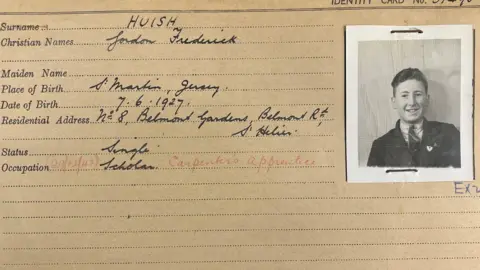 IDENTITY CARD No.
Surname HUISH
Christian Names Gordon Frederick
Maiden Name
Place of Birth St Martin, Jersey.
Date of Birth 7.6.1927.
Residential Address No 8, Belmont Gardens, Belmont Rd,
St Helier.
Status Single
Occupation Scholar Carpenter's Apprentice